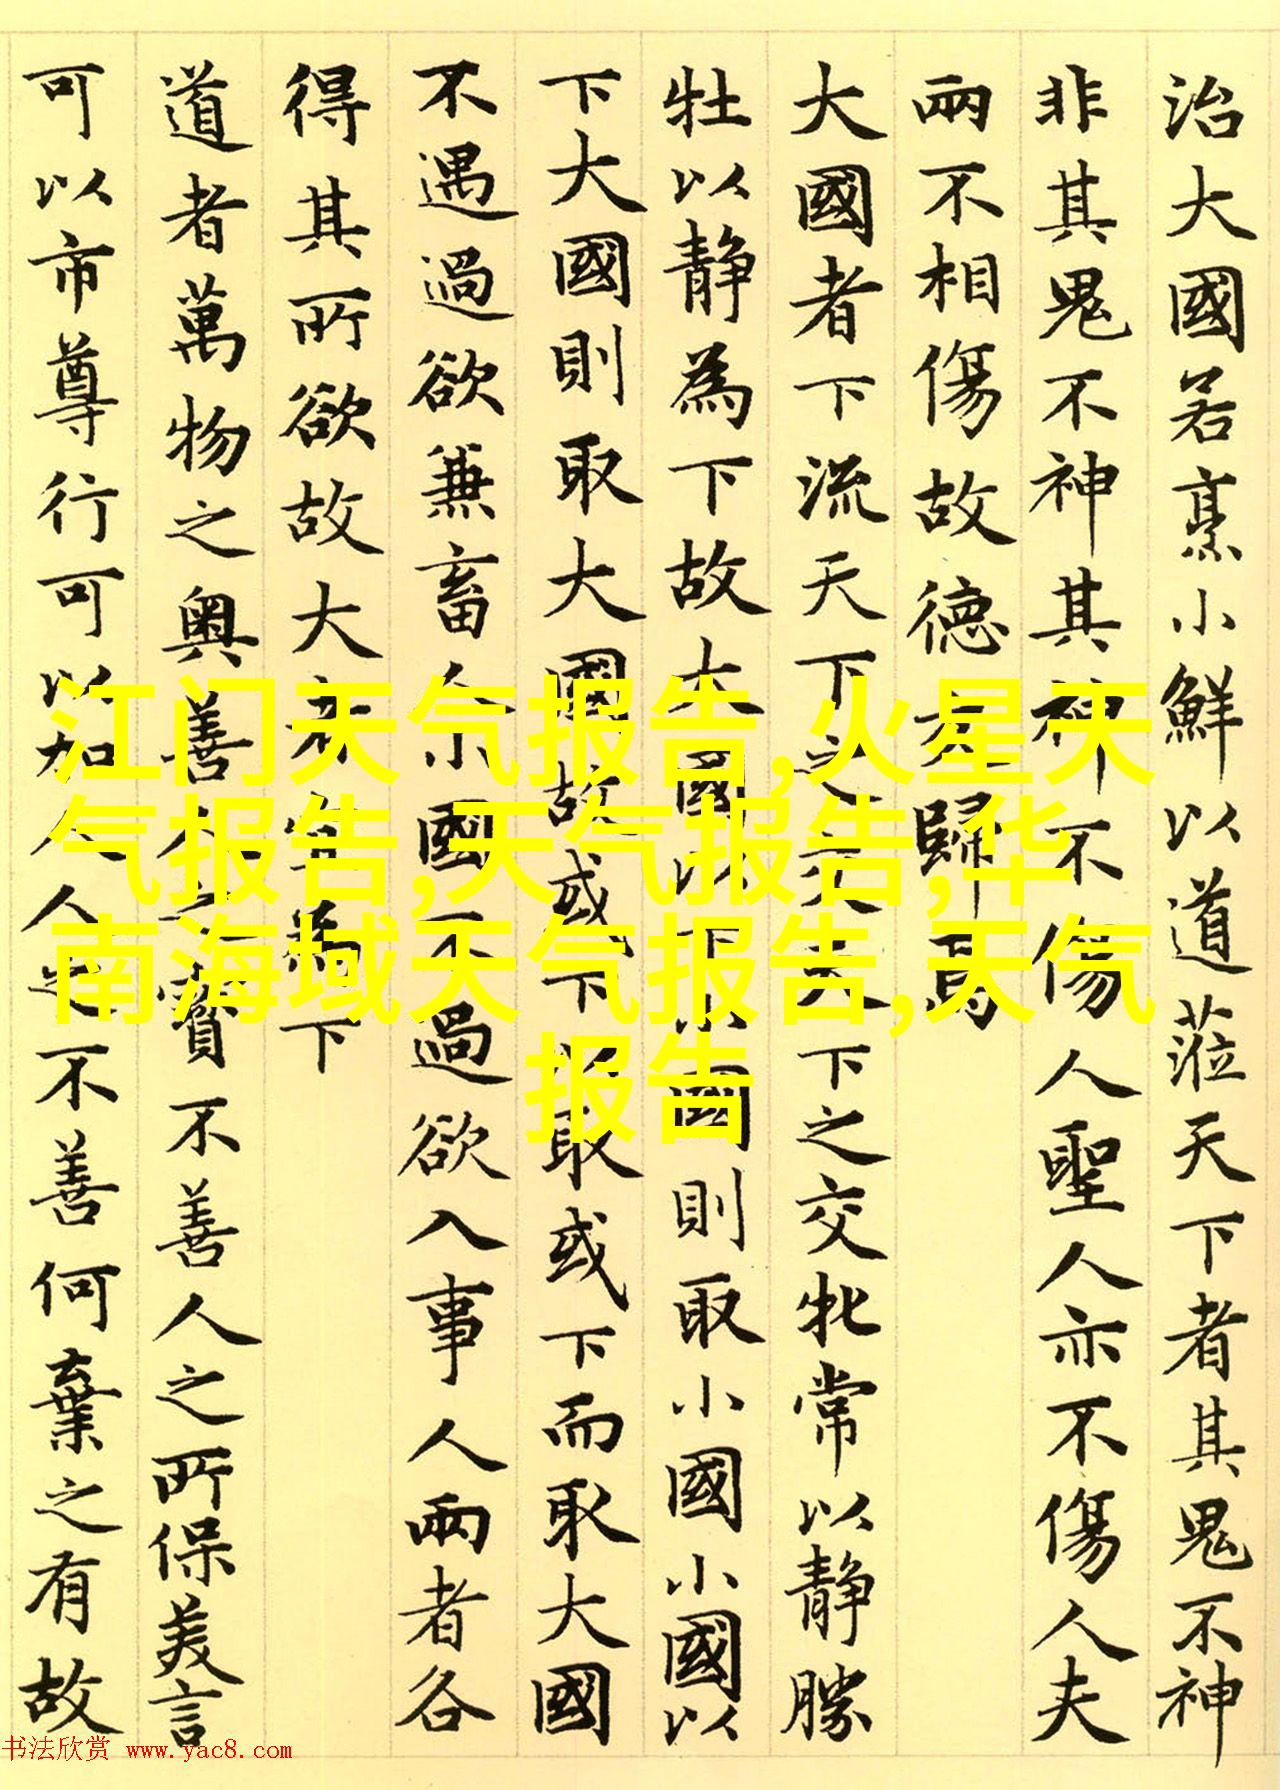 治大國若烹小鮮以道蒞天下者其鬼不神
非其鬼不神其神不傷人聖人亦不傷人夫
兩不相傷故德交歸焉
大國者下流天下之交天下之交牝常以静勝
牡以静為下故大國以下小國則取小國小國以
下大國則取大國故或下以取或下而取大國
不遇過欲兼畜人小國不過欲入事人兩者各
得其所欲故大者宜為下
道者萬物之奥善人之寶不善人之所保美言
可以市尊行可以加人人之不善何棄之有故
江门天气报告,火星天
气报告,天气报告,华
南海域天气报告,天气
报告
书法欣赏 www.yac8.com